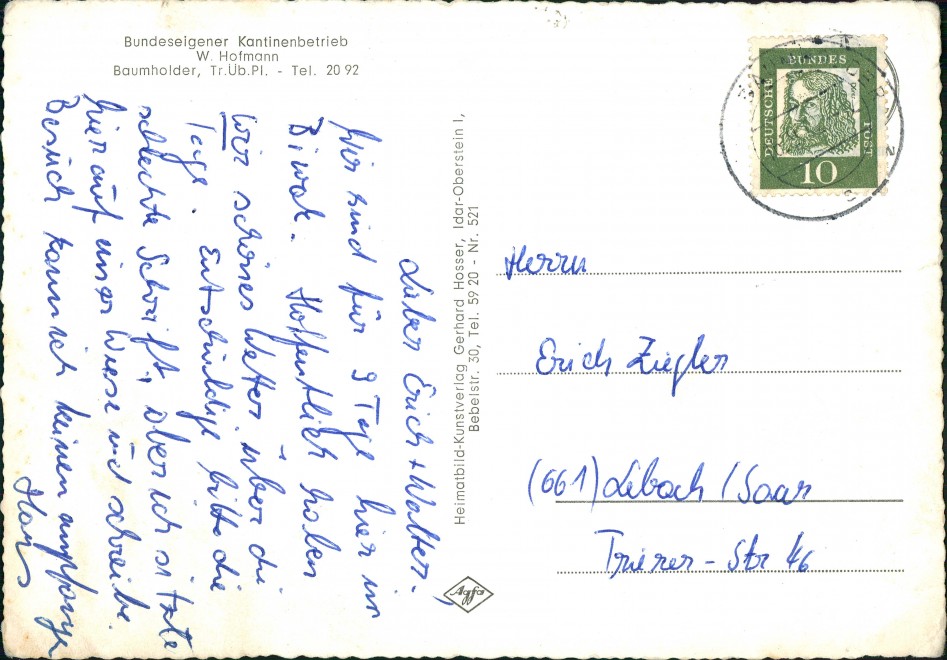 Bundeseigener Kantinenbetrieb
W. Hofmann
Baumholder, Tr.Üb.Pl. - Tel. 20 92
Lieber Erich + Walter,
Wir sind für 9 Tage hier im
Biwak. Hoffentlich haben
wir schönes Wetter über die
Tage. Entschuldige bitte die
schlechte Schrift, aber ich sitze
hier auf einer Wiese und schreibe.
Besuch kann ich keinen empfangen
Hans
Heimatbild-Kunstverlag Gerhard Hosser, Idar-Oberstein I,
Bebelstr. 30, Tel. 59 20 - Nr. 521
Agfa
DEUTSCHE
BUNDES
POST
10
Herrn
Erich Ziegler
(661) Lebach / Saar
Trierer-Str 46